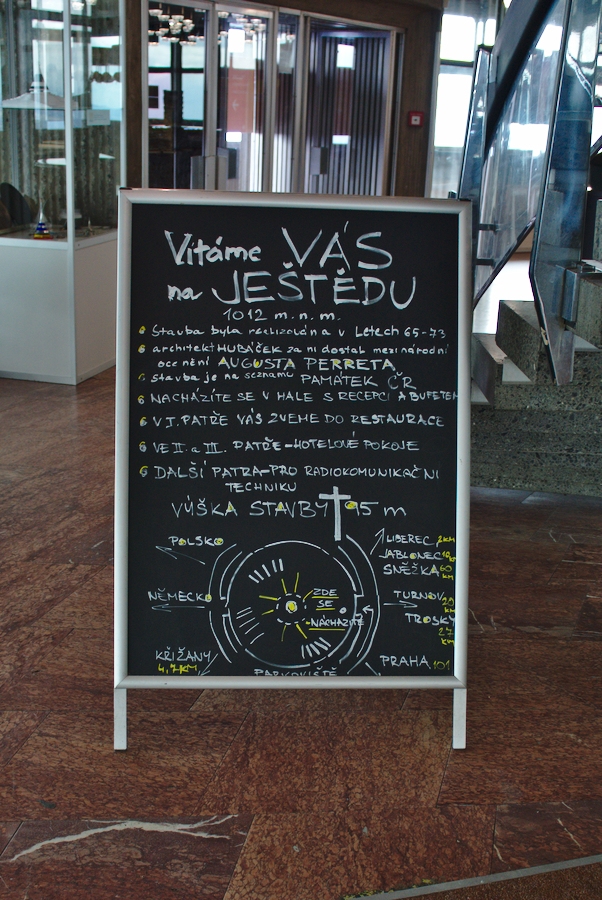 Vítáme VÁS
na JEŠTĚDU
1012 m.n.m.
Stavba byla realizována v Letech 65-73
architekt HUBÁČEK za ni dostal mezinárodní
ocenění AUGUSTA PERRETA
Stavba je na seznamu PAMÁTEK ČR
NACHÁZÍTE SE V HALE S RECEPCÍ A BUFETEM
V I. PATŘE VÁS ZVEME DO RESTAURACE
VE II. a III. PATŘE-HOTELOVÉ POKOJE
DALŠÍ PATRA-PRO RADIOKOMUNIKAČNÍ
TECHNIKU
VÚŠKA STAVBY 95 m
POLSKO
NĚMECKO
KŘIŽANY
4,7KM
ZDE
SE
NACHÁZÍTE
PARKOVIŠTĚ
LIBEREC
JABLONEC
SNĚŽKA 60
km
TURNOV
29
km
TROSKY
27
km
PRAHA 101